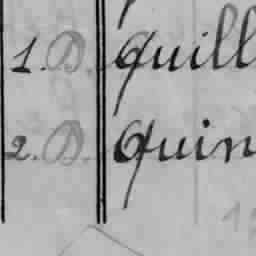 1. D. Quill
2. D. Quin